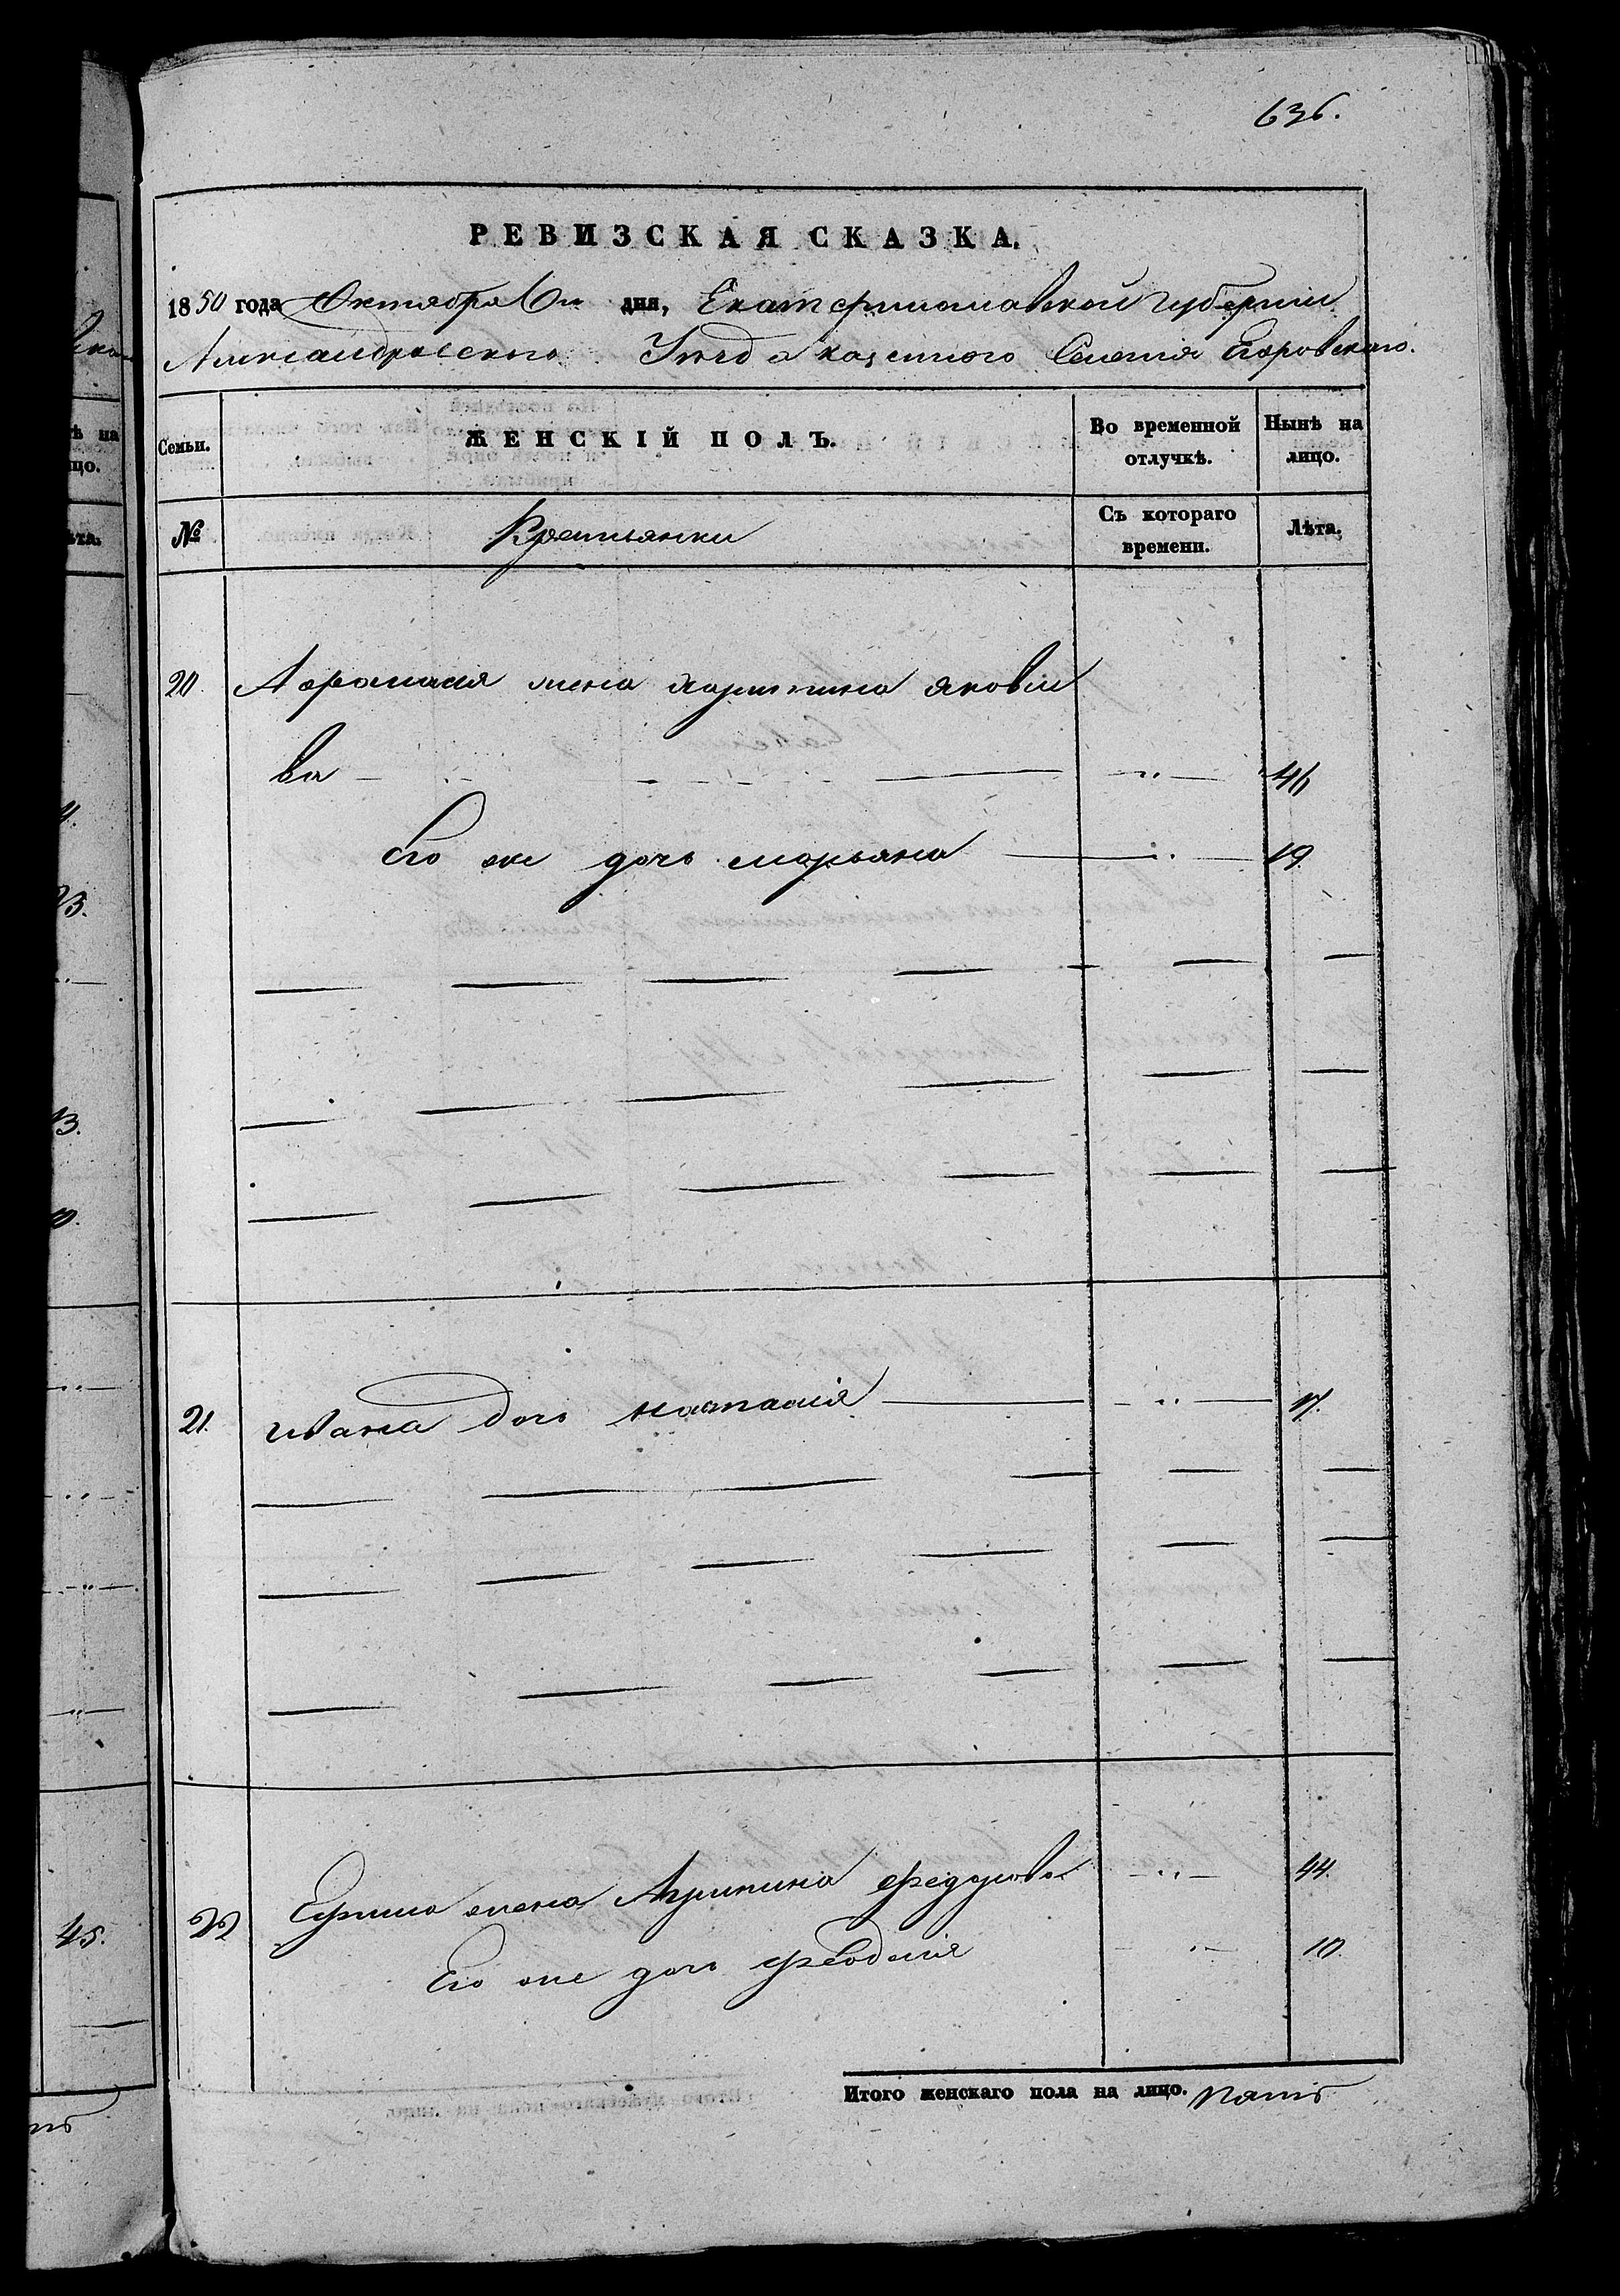 636.
РЕВИЗСКАЯ СКАЗКА.
1850 года Октября 6го дня, Екатеринославской губернии
Александровского Уезда казенного Селения Егоровскаго.
Семьи. ЖЕНСКІЙ ПОЛЪ. Во временной отлучкѣ. Нынѣ на лицо.
№ Крестьянки Съ котораго времени. Лѣта.
20. Афанасия жена Харитина яковле
ва — 46
Его же дочь марьяна — 19.
21. ивана дочь настасия — 17.
22 жена Агрипина федорова — 44.
Его же дочь феодосия — 10.
Итого женскаго пола на лицо. пять
ѣ на
цо.
ѣта.
13.
45.